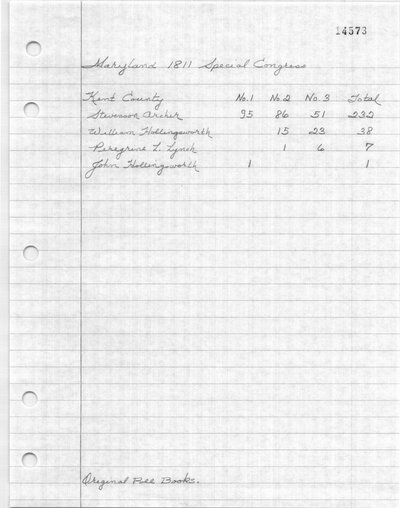 14573
Maryland 1811 Special Congress
Kent County No. 1 No. 2 No. 3 Total
Stevenson Archer 95 86 51 232
William Hollingsworth 15 23 38
Peregrine L. Lynch 1 6 7
John Hollingsworth 1 1
Original Poll Books.